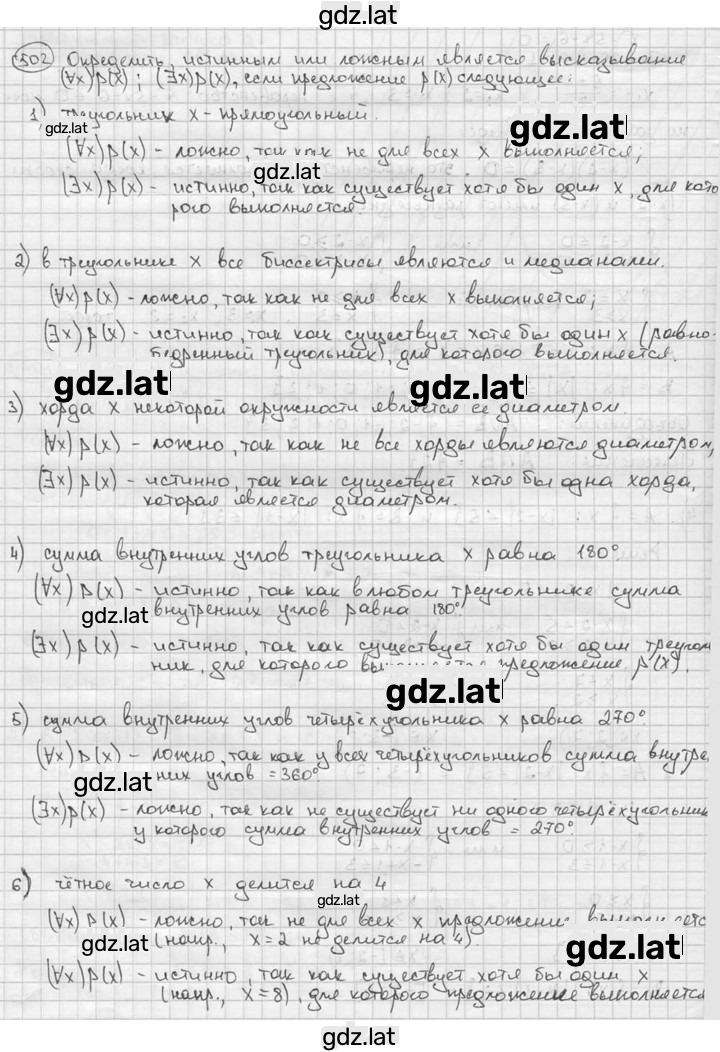 gdz.lat
502 Определить, истинным или ложным является высказывание
(∀x)p(x); (∃x)p(x), если предложение p(x) следующее:
1) треугольник x - прямоугольный.
gdz.lat
gdz.lat
(∀x)p(x) - ложно, так как не для всех x выполняется;
gdz.lat
(∃x)p(x) - истинно, так как существует хотя бы один x, для кото
рого выполняется.
2) в треугольнике x все биссектрисы являются и медианами.
(∀x)p(x) - ложно, так как не для всех x выполняется;
(∃x)p(x) - истинно, так как существует хотя бы один x (равно-
бедренный треугольник), для которого выполняется.
gdz.lat
gdz.lat
3) хорда x некоторой окружности является её диаметром.
(∀x)p(x) - ложно, так как не все хорды являются диаметром,
(∃x)p(x) - истинно, так как существует хотя бы одна хорда,
которая является диаметром.
4) сумма внутренних углов треугольника x равна 180°
(∀x)p(x) - истинно, так как в любом треугольнике сумма
gdz.lat
внутренних углов равна 180°
(∃x)p(x) - истинно, так как существует хотя бы один треугол
ник, для которого предложение p(x).
gdz.lat
5) сумма внутренних углов четырёхугольника x равна 270°
(∀x)p(x) - ложно, так как у всех четырёхугольников сумма внутре
gdz.lat
них углов = 360°
(∃x)p(x) - ложно, так как не существует ни одного четырёхугольник
у которого сумма внутренних углов = 270°.
6) чётное число x делится на 4
gdz.lat
(∀x)p(x) - ложно, так не для всех x предложение
gdz.lat
(напр., x=2 не делится на 4)
gdz.lat
(∀x)p(x) - истинно, так как существует хотя бы один x
(напр., x=8), для которого предложение выполняется
gdz.lat